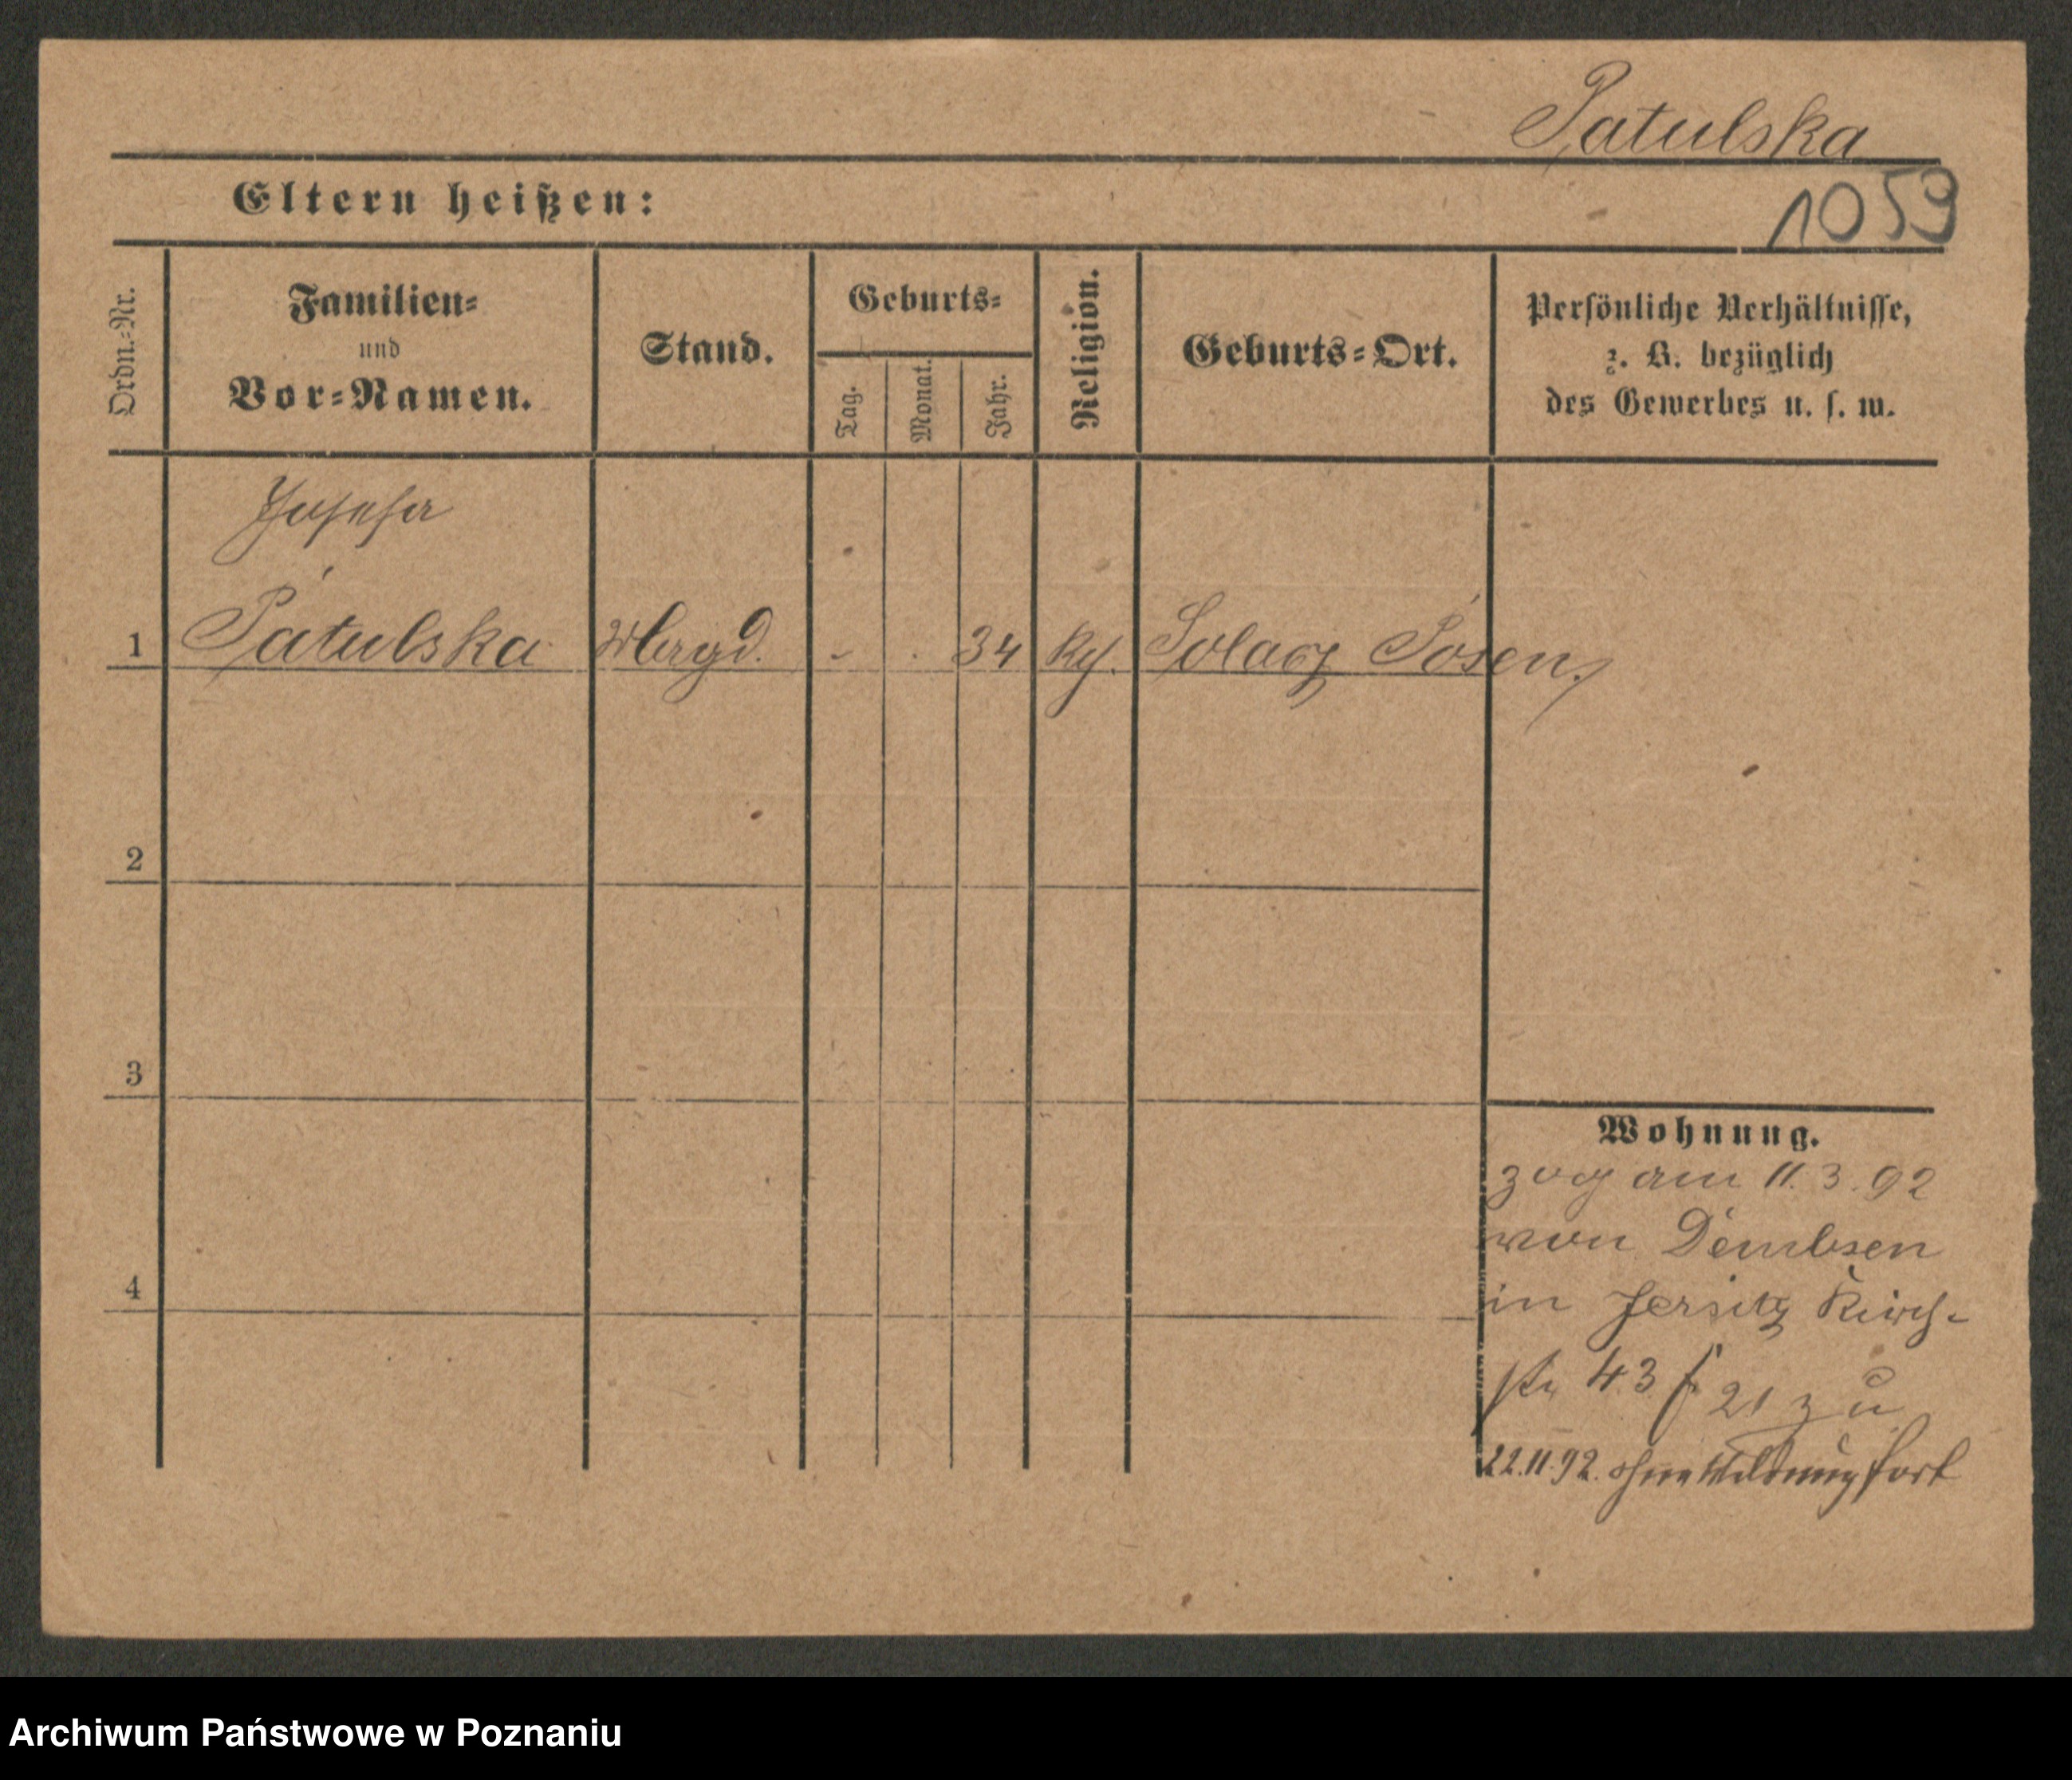 Patulska
Eltern heißen:
1059
Ordn.-Nr.
Familien-
und
Vor-Namen.
Stand.
Geburts-
Tag.
Monat.
Jahr.
Religion.
Geburts-Ort.
Persönliche Verhältnisse,
z. B. bezüglich
des Gewerbes u. s. w.
Josefa
1 Patulska - . 34 Solacz Posen.
2
3
4
Wohnung.
zog am 11. 3. 92
von Dembsen
in Jersitz Kirch-
str 43 f 21 zu
22.11.92. ohne Meldung fort
Archiwum Państwowe w Poznaniu